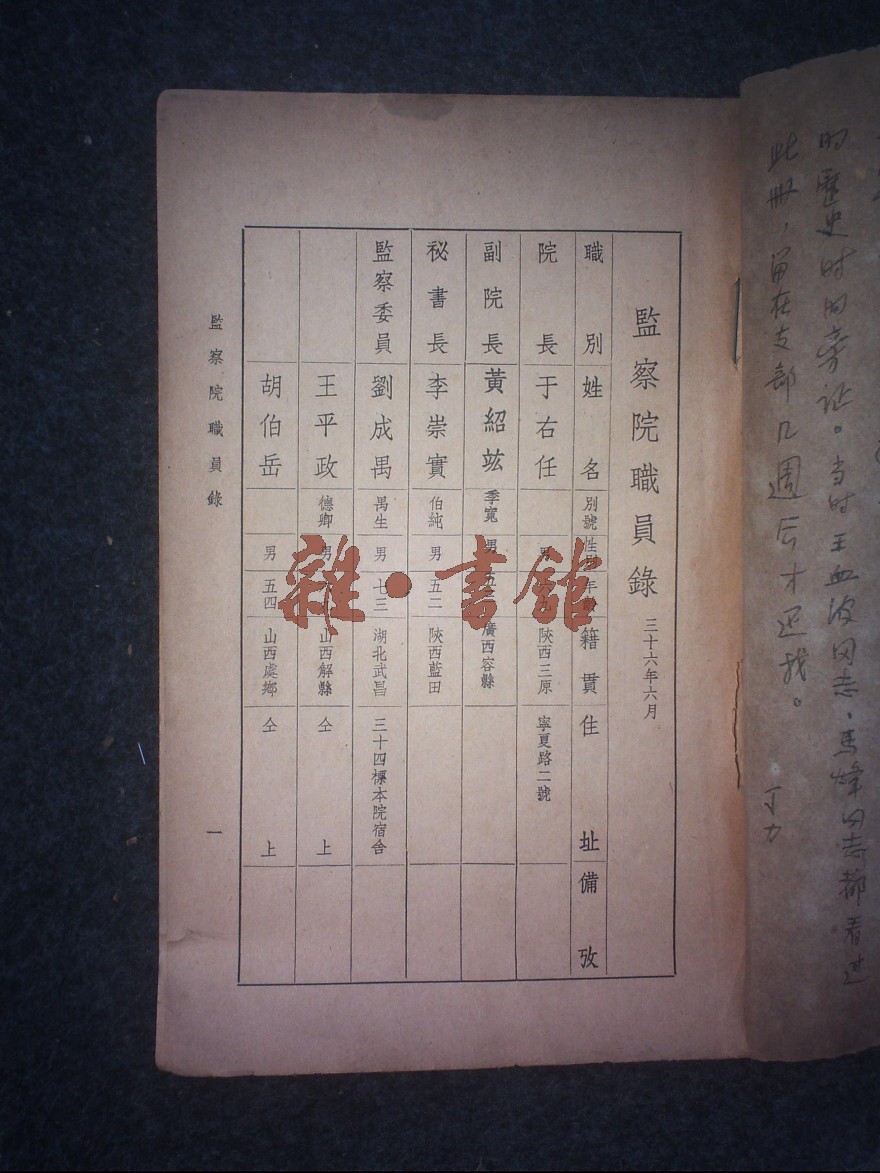 的歷史时的旁证。当时王血波同志,馬烽同志都看过
此冊,留在支部几週后才还我。
丁力
監察院職員錄 三十六年六月
職別 姓名 別號 性別 年齡 籍貫 住址 備攷
院長 于右任 男 陝西三原 寧夏路二號
副院長 黃紹竑 季寬 男 五 廣西容縣
秘書長 李崇實 伯純 男 五二 陝西藍田
監察委員 劉成禺 禺生 男 七三 湖北武昌 三十四標本院宿舍
王平政 德卿 男 山西解縣 仝上
胡伯岳 男 五四 山西虞鄉 仝上
監察院職員錄 一
雜·書館